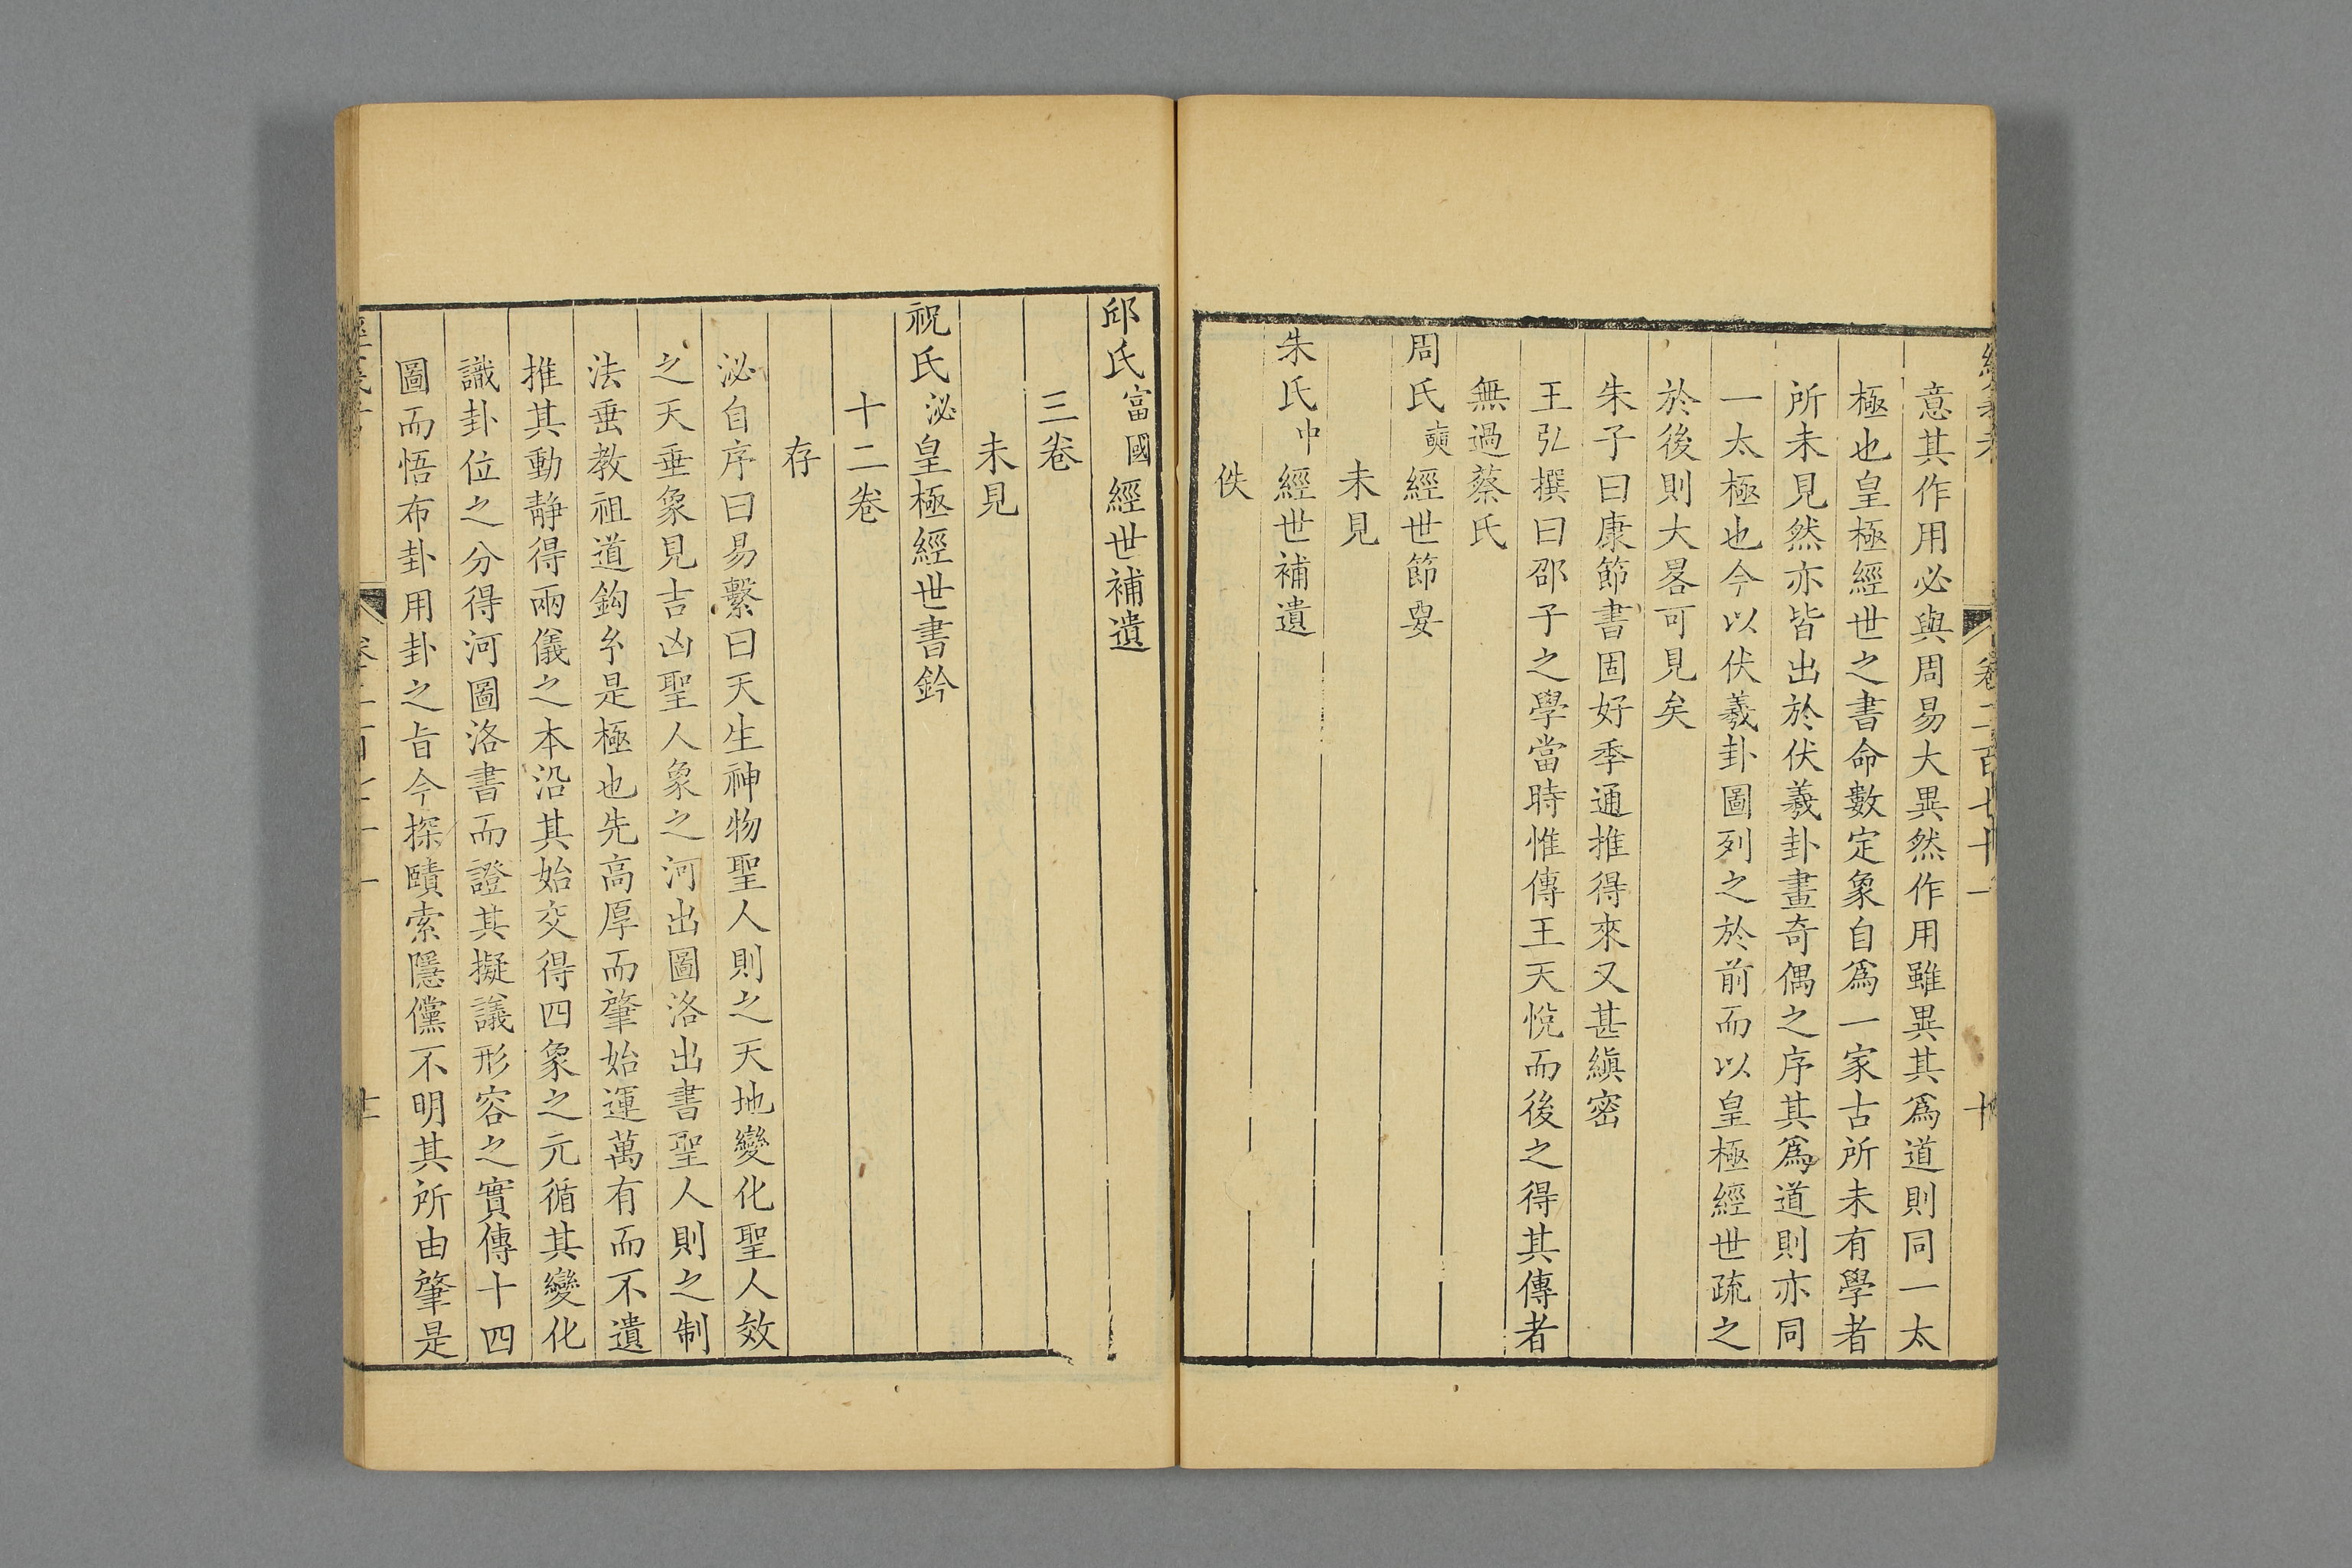 經義考 卷二百七十一 十
意其作用必與周易大異然作用雖異其爲道則同一太
極也皇極經世之書命數定象自爲一家古所未有學者
所未見然亦皆出於伏羲卦畫奇偶之序其爲道則亦同
一太極也今以伏羲卦圖列之於前而以皇極經世疏之
於後則大畧可見矣
朱子曰康節書固好季通推得來又甚縝密
王弘撰曰邵子之學當時惟傳王天悅而後之得其傳者
無過蔡氏
周氏奭經世節要
未見
朱氏中經世補遺
佚
邱氏富國經世補遺
三卷
未見
祝氏泌皇極經世書鈐
十二卷
存
泌自序曰易繫曰天生神物聖人則之天地變化聖人效
之天垂象見吉凶聖人象之河出圖洛出書聖人則之制
法垂教祖道鈎糸是極也先高厚而肇始運萬有而不遺
推其動靜得兩儀之本沿其始交得四象之元循其變化
識卦位之分得河圖洛書而證其擬議形容之實傳十四
圖而悟布卦用卦之旨今探賾索隱儻不明其所由肇是